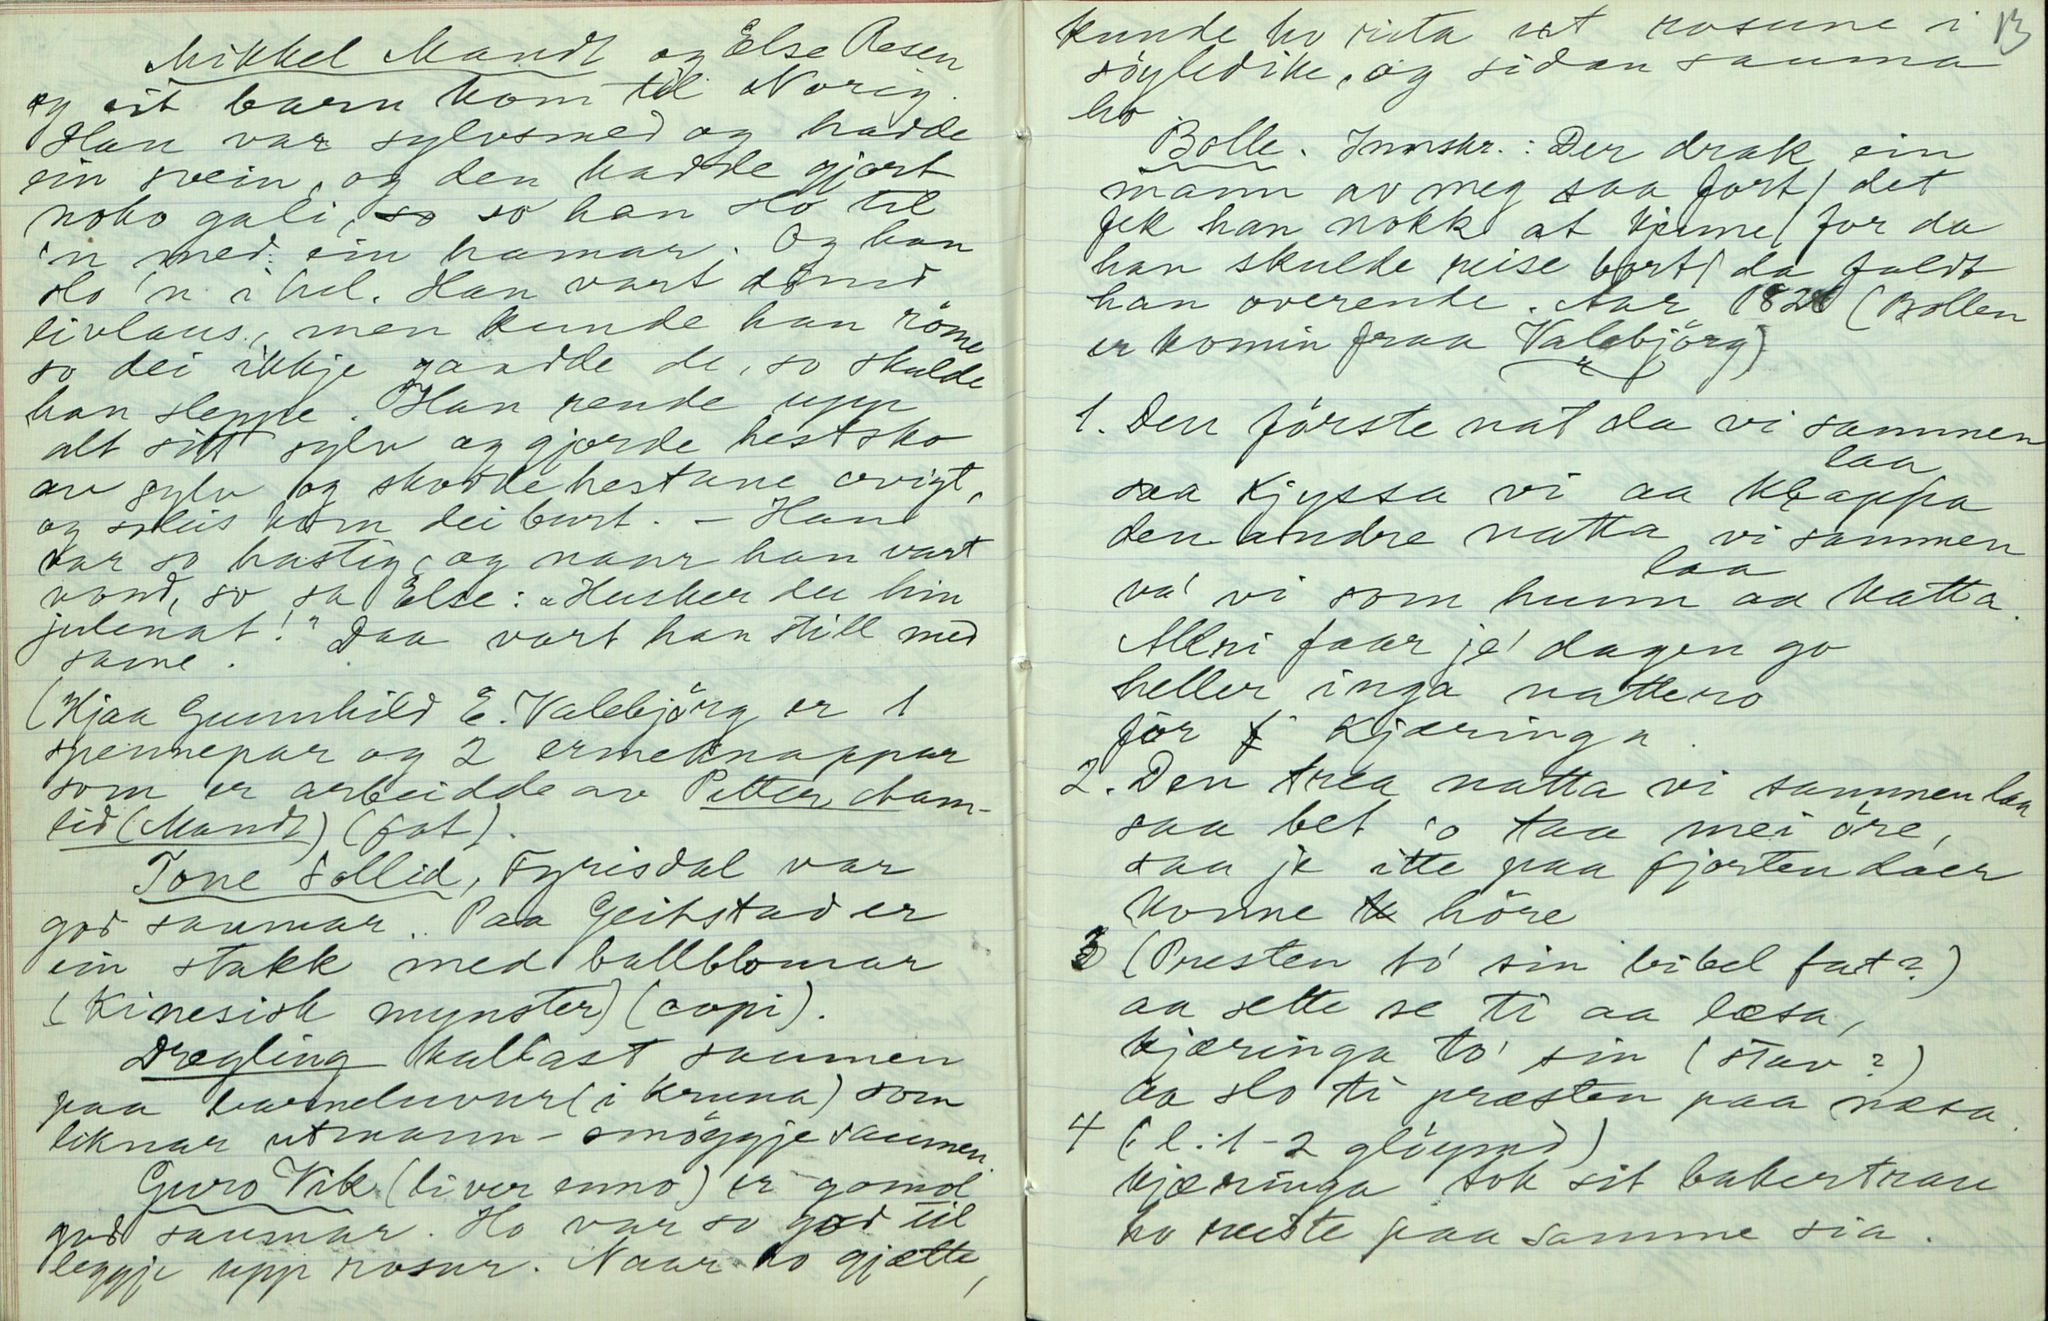 Mikkel Mandt og Else Aasen
og eit barn kom til Norig.
Han var sylvsmed og hadde
ein svein, og den hadde gjort
noko gali, so so han slo til
'n med ein hamar. Og han
slo 'n i hel. Han vart dømd
livlaus, men kunde han røme
so dei ikkje gaadde de, so skulde
han sleppe. Han rende upp
alt sitt sylv og gjorde hestsko
av sylv og skodde hestane avigt,
og soleis kom dei burt. – Han
var so hastig, og naar han vart
vond, so sa Else: "Husker du hin
julenat!" Daa vart han still med
same.
(Hjaa Gunnhild E. Valebjörg er 1
spennepar og 2 ermeknappar
som er arbeidde av Petter Aam-
lid (Mandt) (fot).
Tone Sollid, Fyrisdal var
god saumar. Paa Geitstad er
ein stakk med ballblomar
(Kinesisk mynster) (copi).
Drægling kallast saumen
paa barneluvur (i kruna) som
liknar utmann-smöggjesaumen.
Guro Vik (liver enno) er gomol
god saumar. Ho var so god til
leggje upp rosur. Naar ho gjætte,
13
kunde ho rita ut rosune i
söyledike, og sidan sauma
ho
Bolle. Innskr.: Der drak ein
mann av meg saa fort/ det
fek han nokk at kjenne/ for da
han skulde reise bort/ da faldt
han overende. Aar 1826 (Bollen
er komin fraa Valebjörg)
1. Den förste nat da vi sammen
laa
saa kjyssa vi aa klappa
den andre natta vi sammen
laa
va' vi som hunn aa katta.
Alli faar je' dagen go
heller inga nattero
för f kjæringa.
2. Den trea natta vi sammen laa
saa bet 'o taa mei öre,
saa je itte paa fjorten daer
konne k höre
3 (Presten to' sin bibel fat?)
aa sette se ti aa læsa,
kjæringa to' sin (stav?)
aa slo ti præsten paa næsa.
4 (l. 1-2 glöymd)
kjæringa tok sit bakertrau
ho reiste paa samme sia.